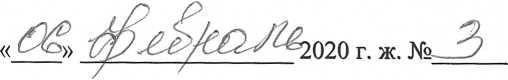 «06» февраль 2020 г. ж. № 3